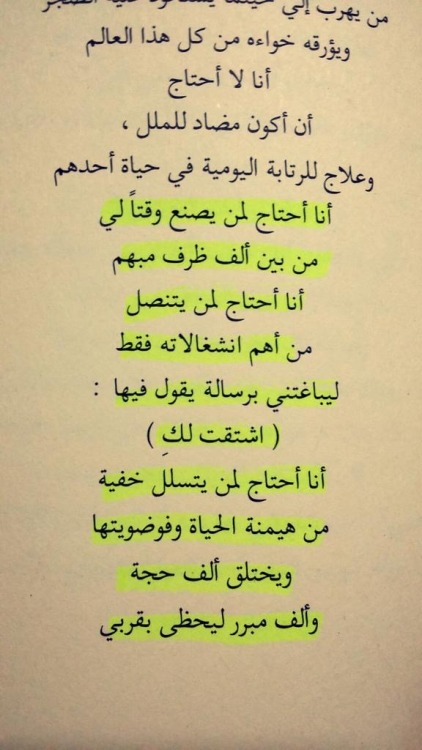 من يهرب إلي حينما يستحوذ عليه الضجر
ويؤرقه خواءه من كل هذا العالم
أنا لا أحتاج
أن أكون مضاد للملل ،
وعلاج للرتابة اليومية في حياة أحدهم
أنا أحتاج لمن يصنع وقتاً لي
من بين ألف ظرف مبهم
أنا أحتاج لمن يتنصل
من أهم انشغالاته فقط
ليباغتني برسالة يقول فيها :
( اشتقت لكِ )
أنا أحتاج لمن يتسلل خفية
من هيمنة الحياة وفوضويتها
ويختلق ألف حجة
وألف مبرر ليحظى بقربي